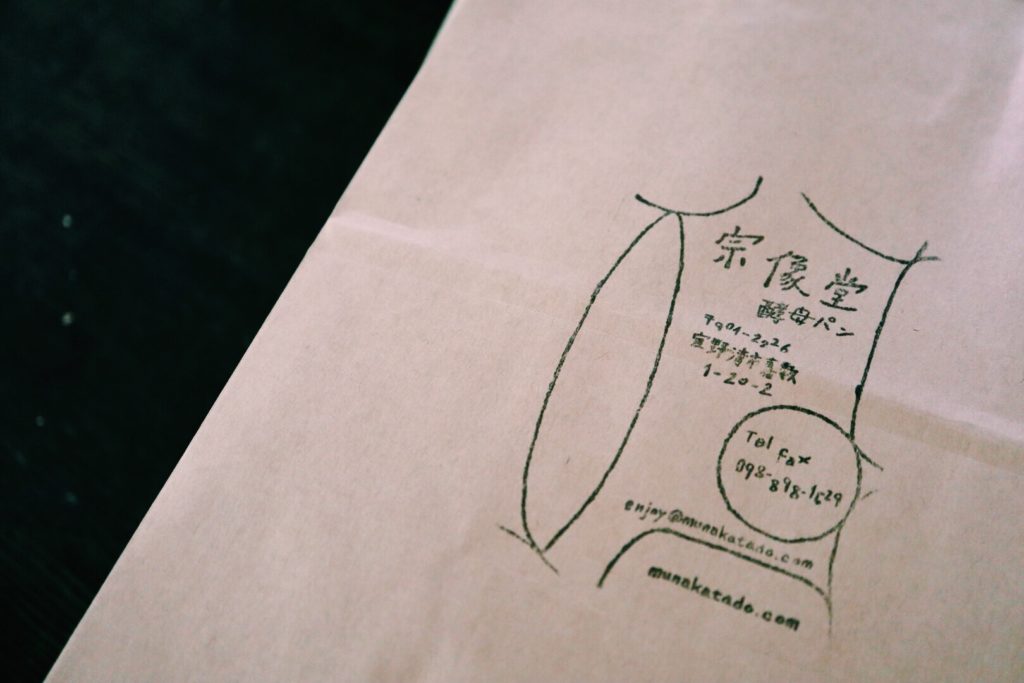 宗像堂
酵母パン
〒901-2226
宜野湾市嘉数
1-20-2
Tel Fax
098-898-1529
enjoy@munakatado.com
munakatado.com